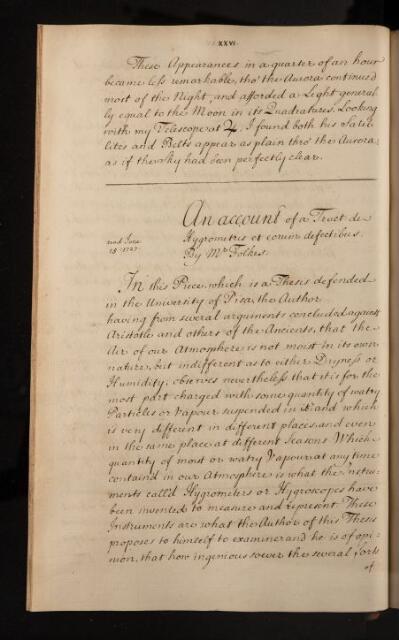 XXVI
These Appearances in a quarter of an hour
became less remarkable, tho' the Aurora continued
most of the Night, and afforded a Light general
ly equal to the Moon in its Quadratures. Looking
with my Telescope at ♃. I found both his Satel
lites and Belts appear as plain thro' the Aurora,
as if the sky had been perfectly clear.
An account of a Tract de
read June
15. 1727.
Hygrometris et eorum defectibus.
By Mr. Folkes.
In this Piece, which is a Thesis defended
in the University of Pisa, the Author
having from several arguments concluded against
Aristotle and others of the Ancients, that the
Air of our Atmosphere is not moist in its own
nature, but indifferent as to either Dryness or
Humidity; observes nevertheless that it is for the
most part charged with some quantity of watry
Particles or Vapour suspended in it and which
is very different in different places, and even
in the same place at different Seasons. Which
quantity of moist or watry Vapour at any time
contain'd in our Atmosphere is what the instru-
ments call'd Hygrometers or Hygroscopes have
been invented to measure and represent. These
Instruments are what the Author of this Thesis
proposes to himself to examine: and he is of opi-
nion, that how ingenious soever the several sorts
of